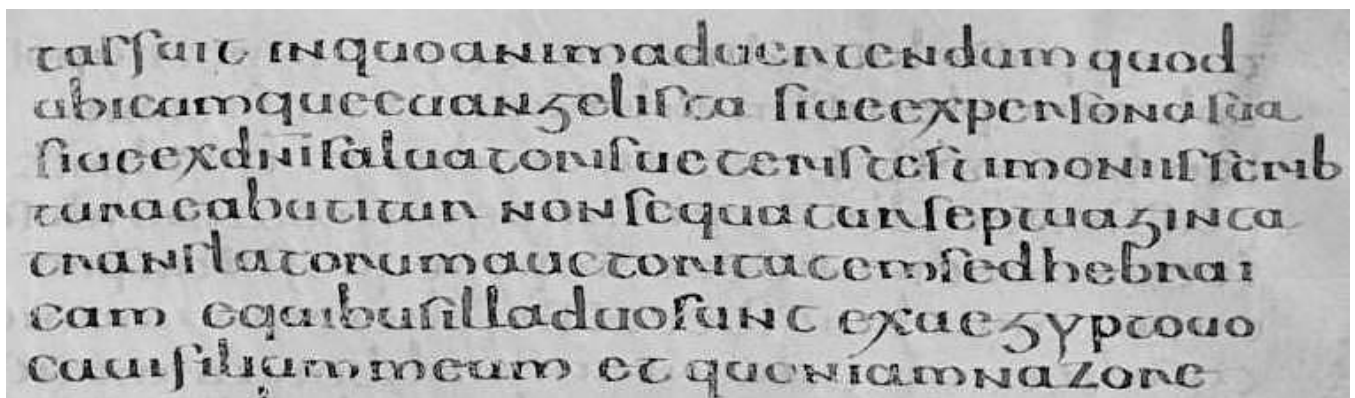 tas fuit in quo animaduertendum quod
ubicumque euangelista siue ex persona sua
siue ex dni saluatoris ueteris testimoniis scrib
turae abutitur non sequatur septuaginta
translatorum auctoritatem sed hebrai
cam e quibus illa duo sunt ex aegypto uo
caui filium meum et quoniam nazore